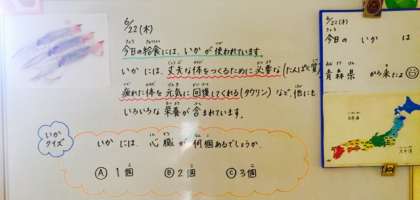 6/22(木)
今日の給食には、いかが使われています。
いかには、丈夫な体をつくるために必要な(たんぱく質)
疲れた体を元気に回復してくれる(タウリン)など、他にも
いろいろな栄養が含まれています。
いか
クイズ
いかには、心臓が何個あるでしょうか。
Ⓐ 1個 Ⓑ 2個 Ⓒ 3個
6/22(木)
今日の いか は
青森県 から来たよ